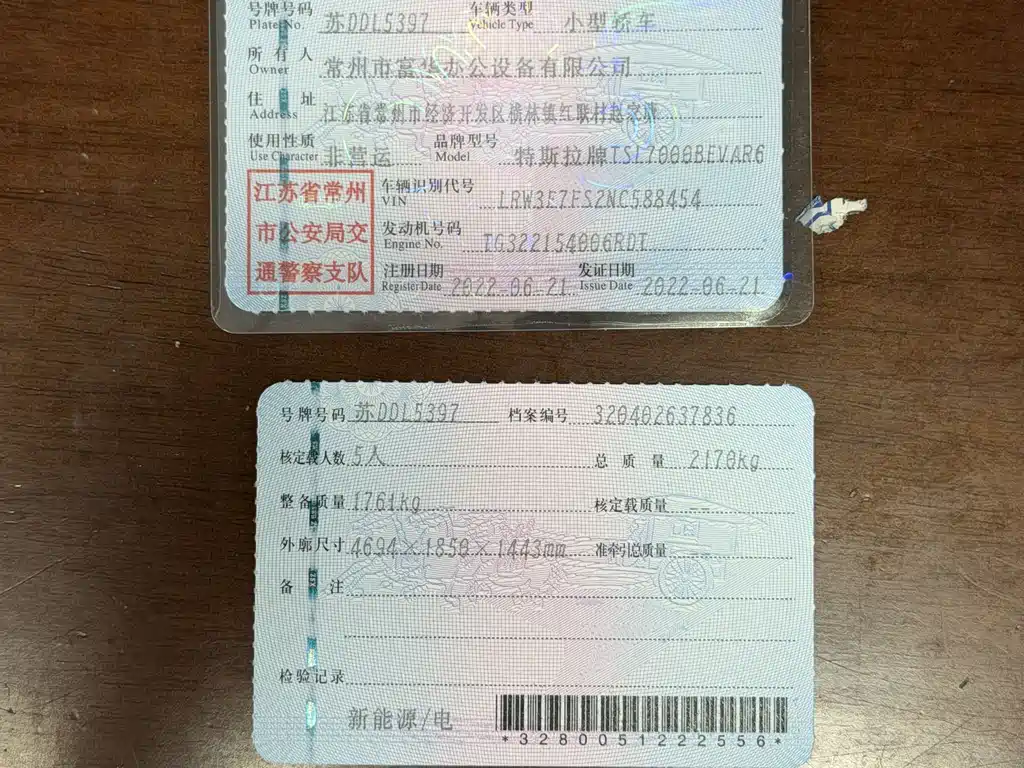 号牌号码 苏DDL5397 车辆类型 小型轿车
Plate No. Vehicle Type
所有人 常州市富华办公设备有限公司
Owner
住址 江苏省常州市经济开发区横林镇红联村赵家
Address
使用性质 非营运 品牌型号 特斯拉牌TSL7000BEVAR6
Use Character Model
江苏省常州
市公安局交
通警察支队
车辆识别代号 LRW3E7FS2NC588454
VIN
发动机号码 TG322154006RDT
Engine No.
注册日期 2022-06-21 发证日期 2022-06-21
Register Date Issue Date
号牌号码 苏DDL5397 档案编号 320402637836
核定载人数 5人 总质量 2170kg
整备质量 1761kg 核定载质量 --
外廓尺寸 4694×1850×1443mm 准牵引总质量 --
备注
检验记录
新能源/电
*3280051222556*